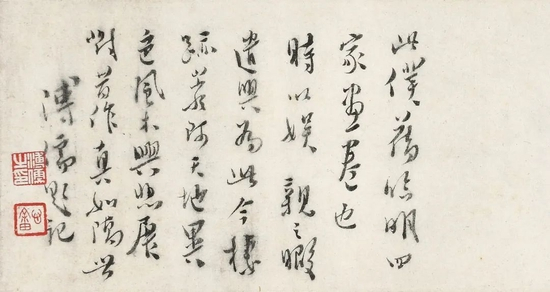 此僕舊臨明四
家畫卷也
時以娛親之暇
遣興為此今棲
跡巖阿天地異
色風木興悲展
對昔作真如隔世
溥儒題記
溥儒之印
心畬